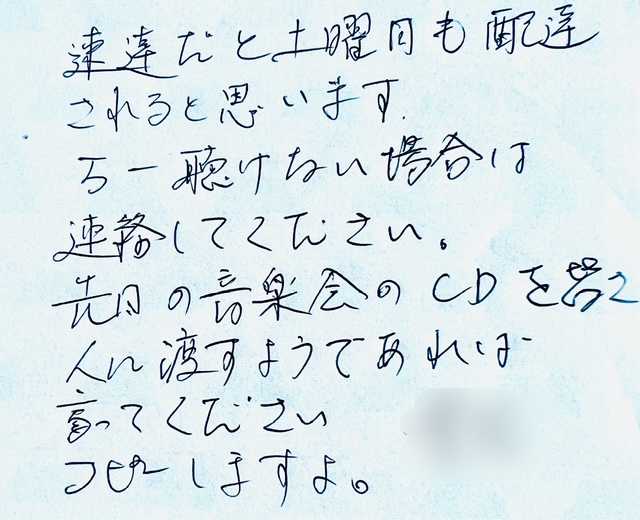 速達だと土曜日も配達
されると思います.
万一聴けない場合は
連絡してください。
先日の音楽会のCDを
人に渡すようであれば
言ってください
コピーしますよ。